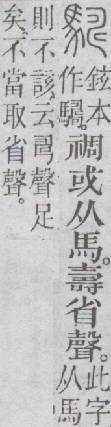 鉉本
作。
禂或从馬。壽省聲。
此字
从馬
則不該云𠷎聲足
矣。不當取省聲。